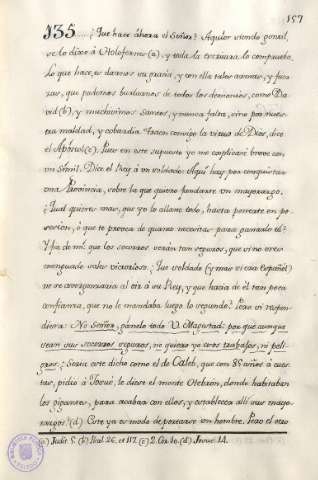 157
135.... ¿Que hace áhora el Señor? Aquior siendo gentil,
se lo dixo à Holofernes (a), y toda la escritura lo comprueba.
Lo que hace, es darnos su gracia, y con ella tales armas, y fuer-
zas, que podamos burlarnos de todos los demonios, como Da-
vid (b), y muchisimos Santos, y nunca falta, sino por nues-
tra maldad, y cobardia. Traen consigo la virtud de Dios, dice
el Apóstol (c). Pues en este supuesto yo me explicaré breve con
un Simil. Dice el Rey à un soldado: Aquí hay por conquistar
una Provincia, sobre la que quiero fundarte un mayorazgo.
¿Qual quieres mas, que yo lo allane todo, hasta ponerte en po-
sesion, ò que te provea de quanto necesitas para ganarlo tú?
Y fia de mí que los socorros serán tan seguros, que si no eres
menguado saldrás victorioso. ¿Que soldado (y mas si era Español)
no se avergonzaria al oir à su Rey, y que hacia de él tan poca
confianza, que no le mandaba luego lo segundo? Pero si respon-
diera: No Señor, gánelo todo V. Magestad: por que aunque
sean sus socorros seguros, no quiero yo esos trabajos, ni peli-
gros. ¿Seria este dicho como el de Caleb, que con 85 años à cues-
tas, pidió à Josue, le diese el monte Hebrón, donde habitaban
los gigantes, para acabar con ellos, y establecer allí sus mayo-
razgos? (d) Este ya es modo de portarse un hombre. Pero el otro
(a) Judit. 5. (b) Psal. 26. et 117. (c) 2. Cor. 10. (d) Josue 14.